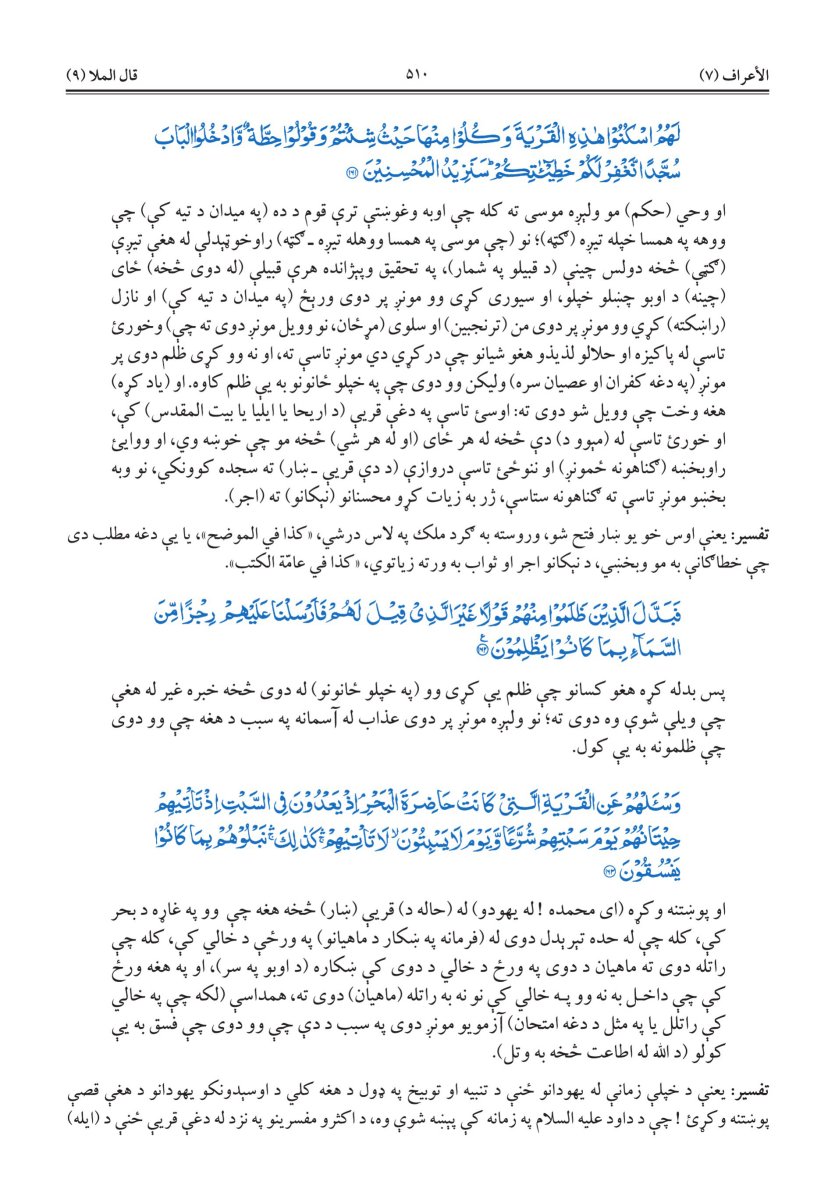 الأعراف (۷)
۵۱۰
قال الملا (۹)
لَهُمُ اسْكُنُوْا هٰذِهِ الْقَرْيَةَ وَكُلُوْا مِنْهَا حَيْثُ شِئْتُمْ وَقُوْلُوْا حِطَّةٌ وَّادْخُلُوا الْبَابَ
سُجَّدًا نَّغْفِرْ لَكُمْ خَطِيْٓـٰٔتِكُمْ ۭ سَنَزِيْدُ الْمُحْسِنِيْنَ ﴿۱۶۱﴾
او وحي (حكم) مو ولېږه موسى ته كله چې اوبه وغوښتې ترې قوم د ده (په ميدان د تيه كې) چې
ووهه په همسا خپله تيږه (ګټه)؛ نو (چې موسى په همسا ووهله تيږه ـ ګټه) راوخوټېدلې له هغې تيږې
(ګټې) څخه دولس چينې (د قبيلو په شمار)، په تحقيق وپېژانده هرې قبيلې (له دوى څخه) ځاى
(چينه) د اوبو چښلو خپلو، او سيورى كړى وو مونږ پر دوى ورېځ (په ميدان د تيه كې) او نازل
(راښكته) كړي وو مونږ پر دوى من (ترنجبين) او سلوى (مړځان، نو وويل مونږ دوى ته چې) وخورئ
تاسې له پاكيزه او حلالو لذيذو هغو شيانو چې دركړي دي مونږ تاسې ته، او نه وو كړى ظلم دوى پر
مونږ (په دغه كفران او عصيان سره) وليكن وو دوى چې په خپلو ځانونو به يې ظلم كاوه. او (ياد كړه)
هغه وخت چې وويل شو دوى ته: اوسئ تاسې په دغې قريې (د اريحا يا ايليا يا بيت المقدس) كې،
او خورئ تاسې له (مېوو د) دې څخه له هر ځاى (او له هر شي) څخه مو چې خوښه وي، او ووايئ
راوبخښه (ګناهونه ځمونږ) او ننوځئ تاسې دروازې (د دې قريې ـ ښار) ته سجده كوونكي، نو وبه
بخښو مونږ تاسې ته ګناهونه ستاسې، ژر به زيات كړو محسنانو (نېكانو) ته (اجر).
تفسير: يعنې اوس خو يو ښار فتح شو، وروسته به ګرد ملک په لاس درشي، «كذا في الموضح»، يا يې دغه مطلب دى
چې خطاګانې به مو وبخښي، د نېكانو اجر او ثواب به ورته زياتوي، «كذا في عامّة الكتب».
فَبَدَّلَ الَّذِيْنَ ظَلَمُوْا مِنْهُمْ قَوْلًا غَيْرَ الَّذِيْ قِيْلَ لَهُمْ فَاَرْسَلْنَا عَلَيْهِمْ رِجْزًا مِّنَ
السَّمَاۗءِ بِمَا كَانُوْا يَظْلِمُوْنَ ﴿۱۶۲﴾
پس بدله كړه هغو كسانو چې ظلم يې كړى وو (په خپلو ځانونو) له دوى څخه خبره غير له هغې
چې ويلې شوې وه دوى ته؛ نو ولېږه مونږ پر دوى عذاب له آسمانه په سبب د هغه چې وو دوى
چې ظلمونه به يې كول.
وَسْـَٔلْهُمْ عَنِ الْقَرْيَةِ الَّتِيْ كَانَتْ حَاضِرَةَ الْبَحْرِ ۘ اِذْ يَعْدُوْنَ فِي السَّبْتِ اِذْ تَاْتِيْهِمْ
حِيْتَانُهُمْ يَوْمَ سَبْتِهِمْ شُرَّعًا وَّيَوْمَ لَا يَسْبِتُوْنَ ۙ لَا تَاْتِيْهِمْ ۚ كَذٰلِكَ ۚ نَبْلُوْهُمْ بِمَا كَانُوْا
يَفْسُقُوْنَ ﴿۱۶۳﴾
او پوښتنه وكړه (اى محمده ! له يهودو) له (حاله د) قريې (ښار) څخه هغه چې وو په غاړه د بحر
كې، كله چې له حده تېرېدل دوى له (فرمانه په ښكار د ماهيانو) په ورځې د خالي كې، كله چې
راتله دوى ته ماهيان د دوى په ورځ د خالي د دوى كې ښكاره (د اوبو په سر)، او په هغه ورځ
كې چې داخل به نه وو په خالي كې نو نه به راتله (ماهيان) دوى ته، همداسې (لكه چې په خالي
كې راتلل يا په مثل د دغه امتحان) آزمويو مونږ دوى په سبب د دې چې وو دوى چې فسق به يې
كولو (د الله له اطاعت څخه به وتل).
تفسير: يعنې د خپلې زمانې له يهودانو ځنې د تنبيه او توبيخ په ډول د هغه كلي د اوسېدونكو يهودانو د هغې قصې
پوښتنه وكړئ ! چې د داود عليه السلام په زمانه كې پېښه شوې وه، د اكثرو مفسرينو په نزد له دغې قريې ځنې د (ايله)